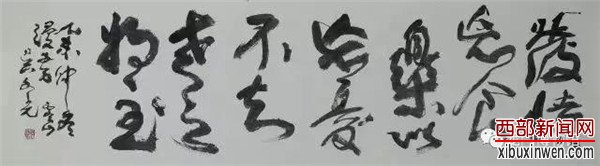 發憤
忘食
樂以
忘憂
不知
老之
將至
西部新闻网
xibuxinwen.com